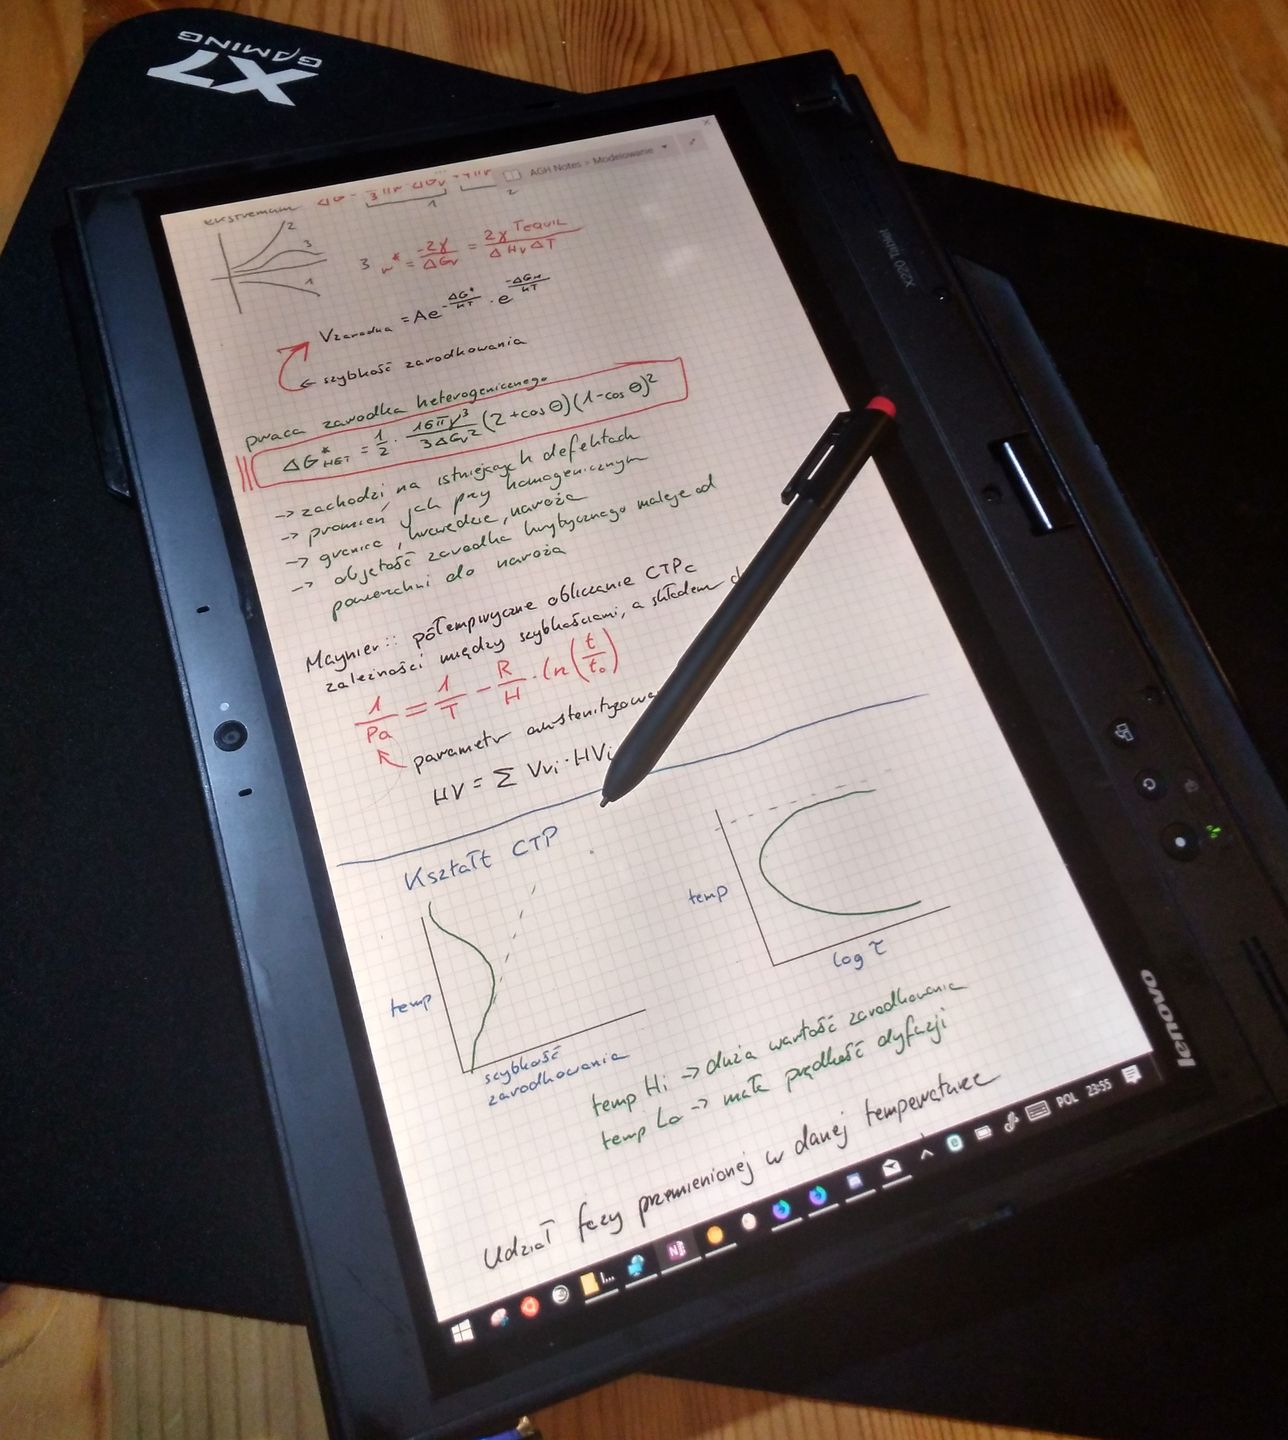 X7
GAMING
AGH Notes > Modelowanie
ekstremum
1
2
2
3
1
3 r* = -2γ/ΔGv = 2γ TEQUIL/ΔHvΔT
Vzarodka = Ae^(-ΔG*/kT) · e^(-ΔGM/kT)
← szybkość zarodkowania
praca zarodka heterogenicznego
ΔG*HET = 1/2 · 16πγ³/3ΔGv² (2+cos Θ)(1-cos Θ)²
-> zachodzi na istniejących defektach
-> promień jak przy homogenicznym
-> granice, krawędzie, naroża
-> objętość zarodka krytycznego maleje od
powierzchni do naroża
Maynier:: półempiryczne obliczanie CTPc
zależności między szybkościami, a składem
1/Pa = 1/T - R/H · ln(t/t₀)
parametr
HV = Σ Vvi · HVi
Kształt CTP
temp
szybkość
zarodkowania
temp
log τ
temp Hi -> duża wartość zarodkowania
temp Lo -> mała prędkość dyfuzji
Udział fazy przemienionej w danej temperaturze
POL 23:55
X220 Tablet
lenovo